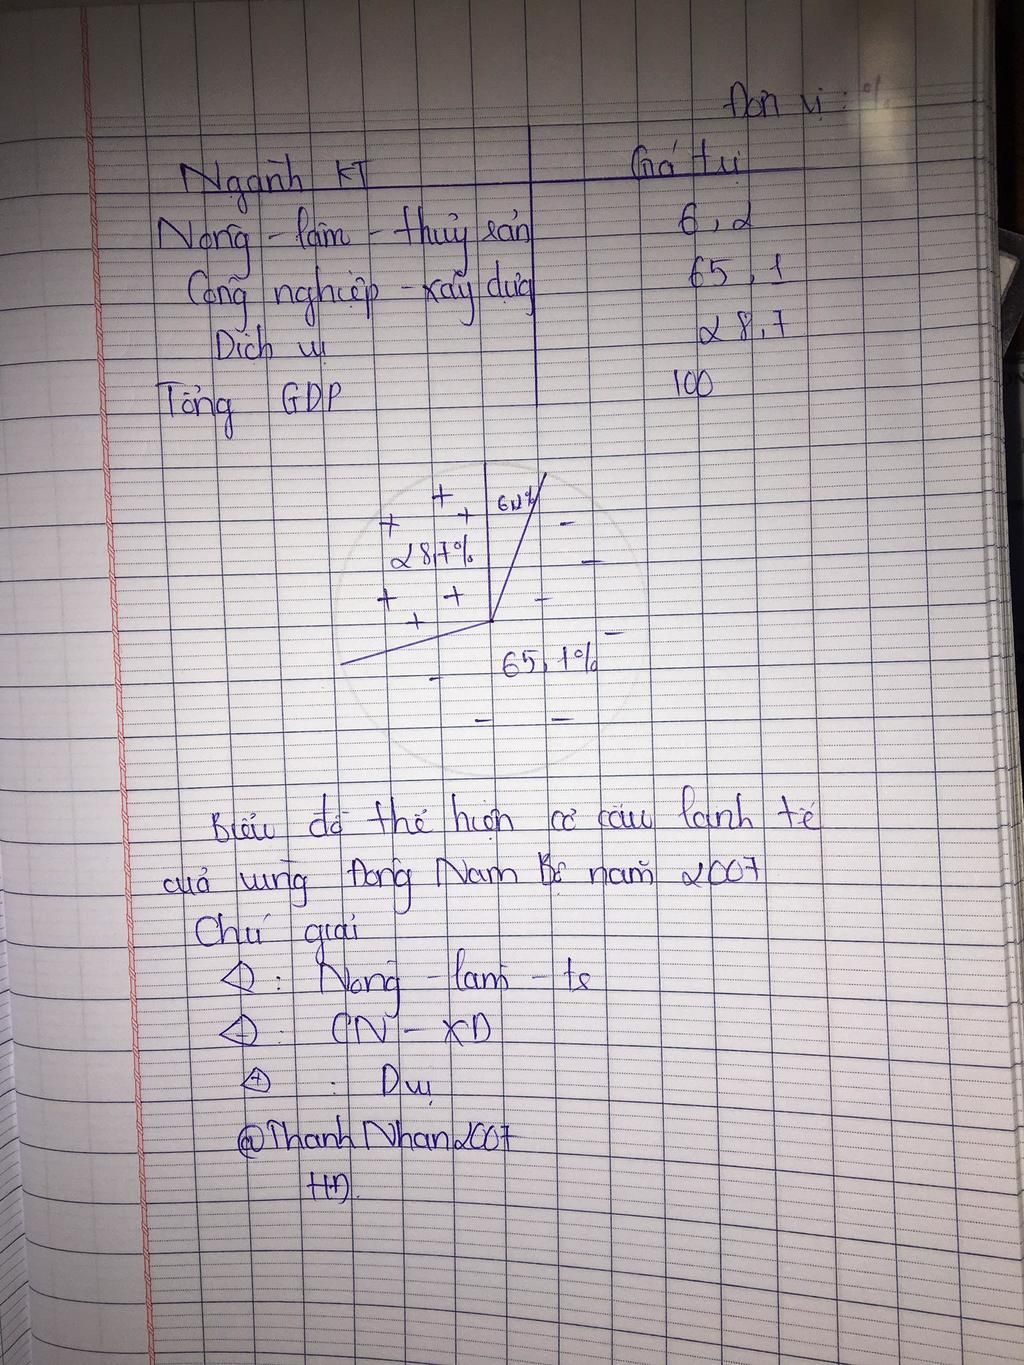 Đơn vị: %
Ngành KT Giá trị
Nông - lâm - thủy sản 6,2
Công nghiệp - xây dựng 65,1
Dịch vụ 28,7
Tổng GDP 100
6,2%
28,7%
65,1%
Biểu đồ thể hiện cơ cấu kinh tế
của vùng Đông Nam Bộ năm 2007
Chú giải
: Nông - lâm - ts
- : CN - XD
+ : Dvụ
@ThanhNhan2007
HĐ.